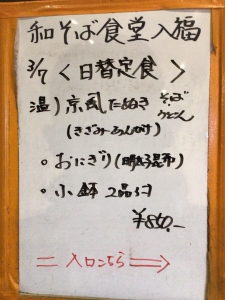 和そば食堂 入福
3/7 〈日替定食〉
温) 京風たぬき そば うどん
(きざみ・あんかけ)
・おにぎり (明太子昆布)
・小鉢 2品付
¥860.-
入口こちら ⇒